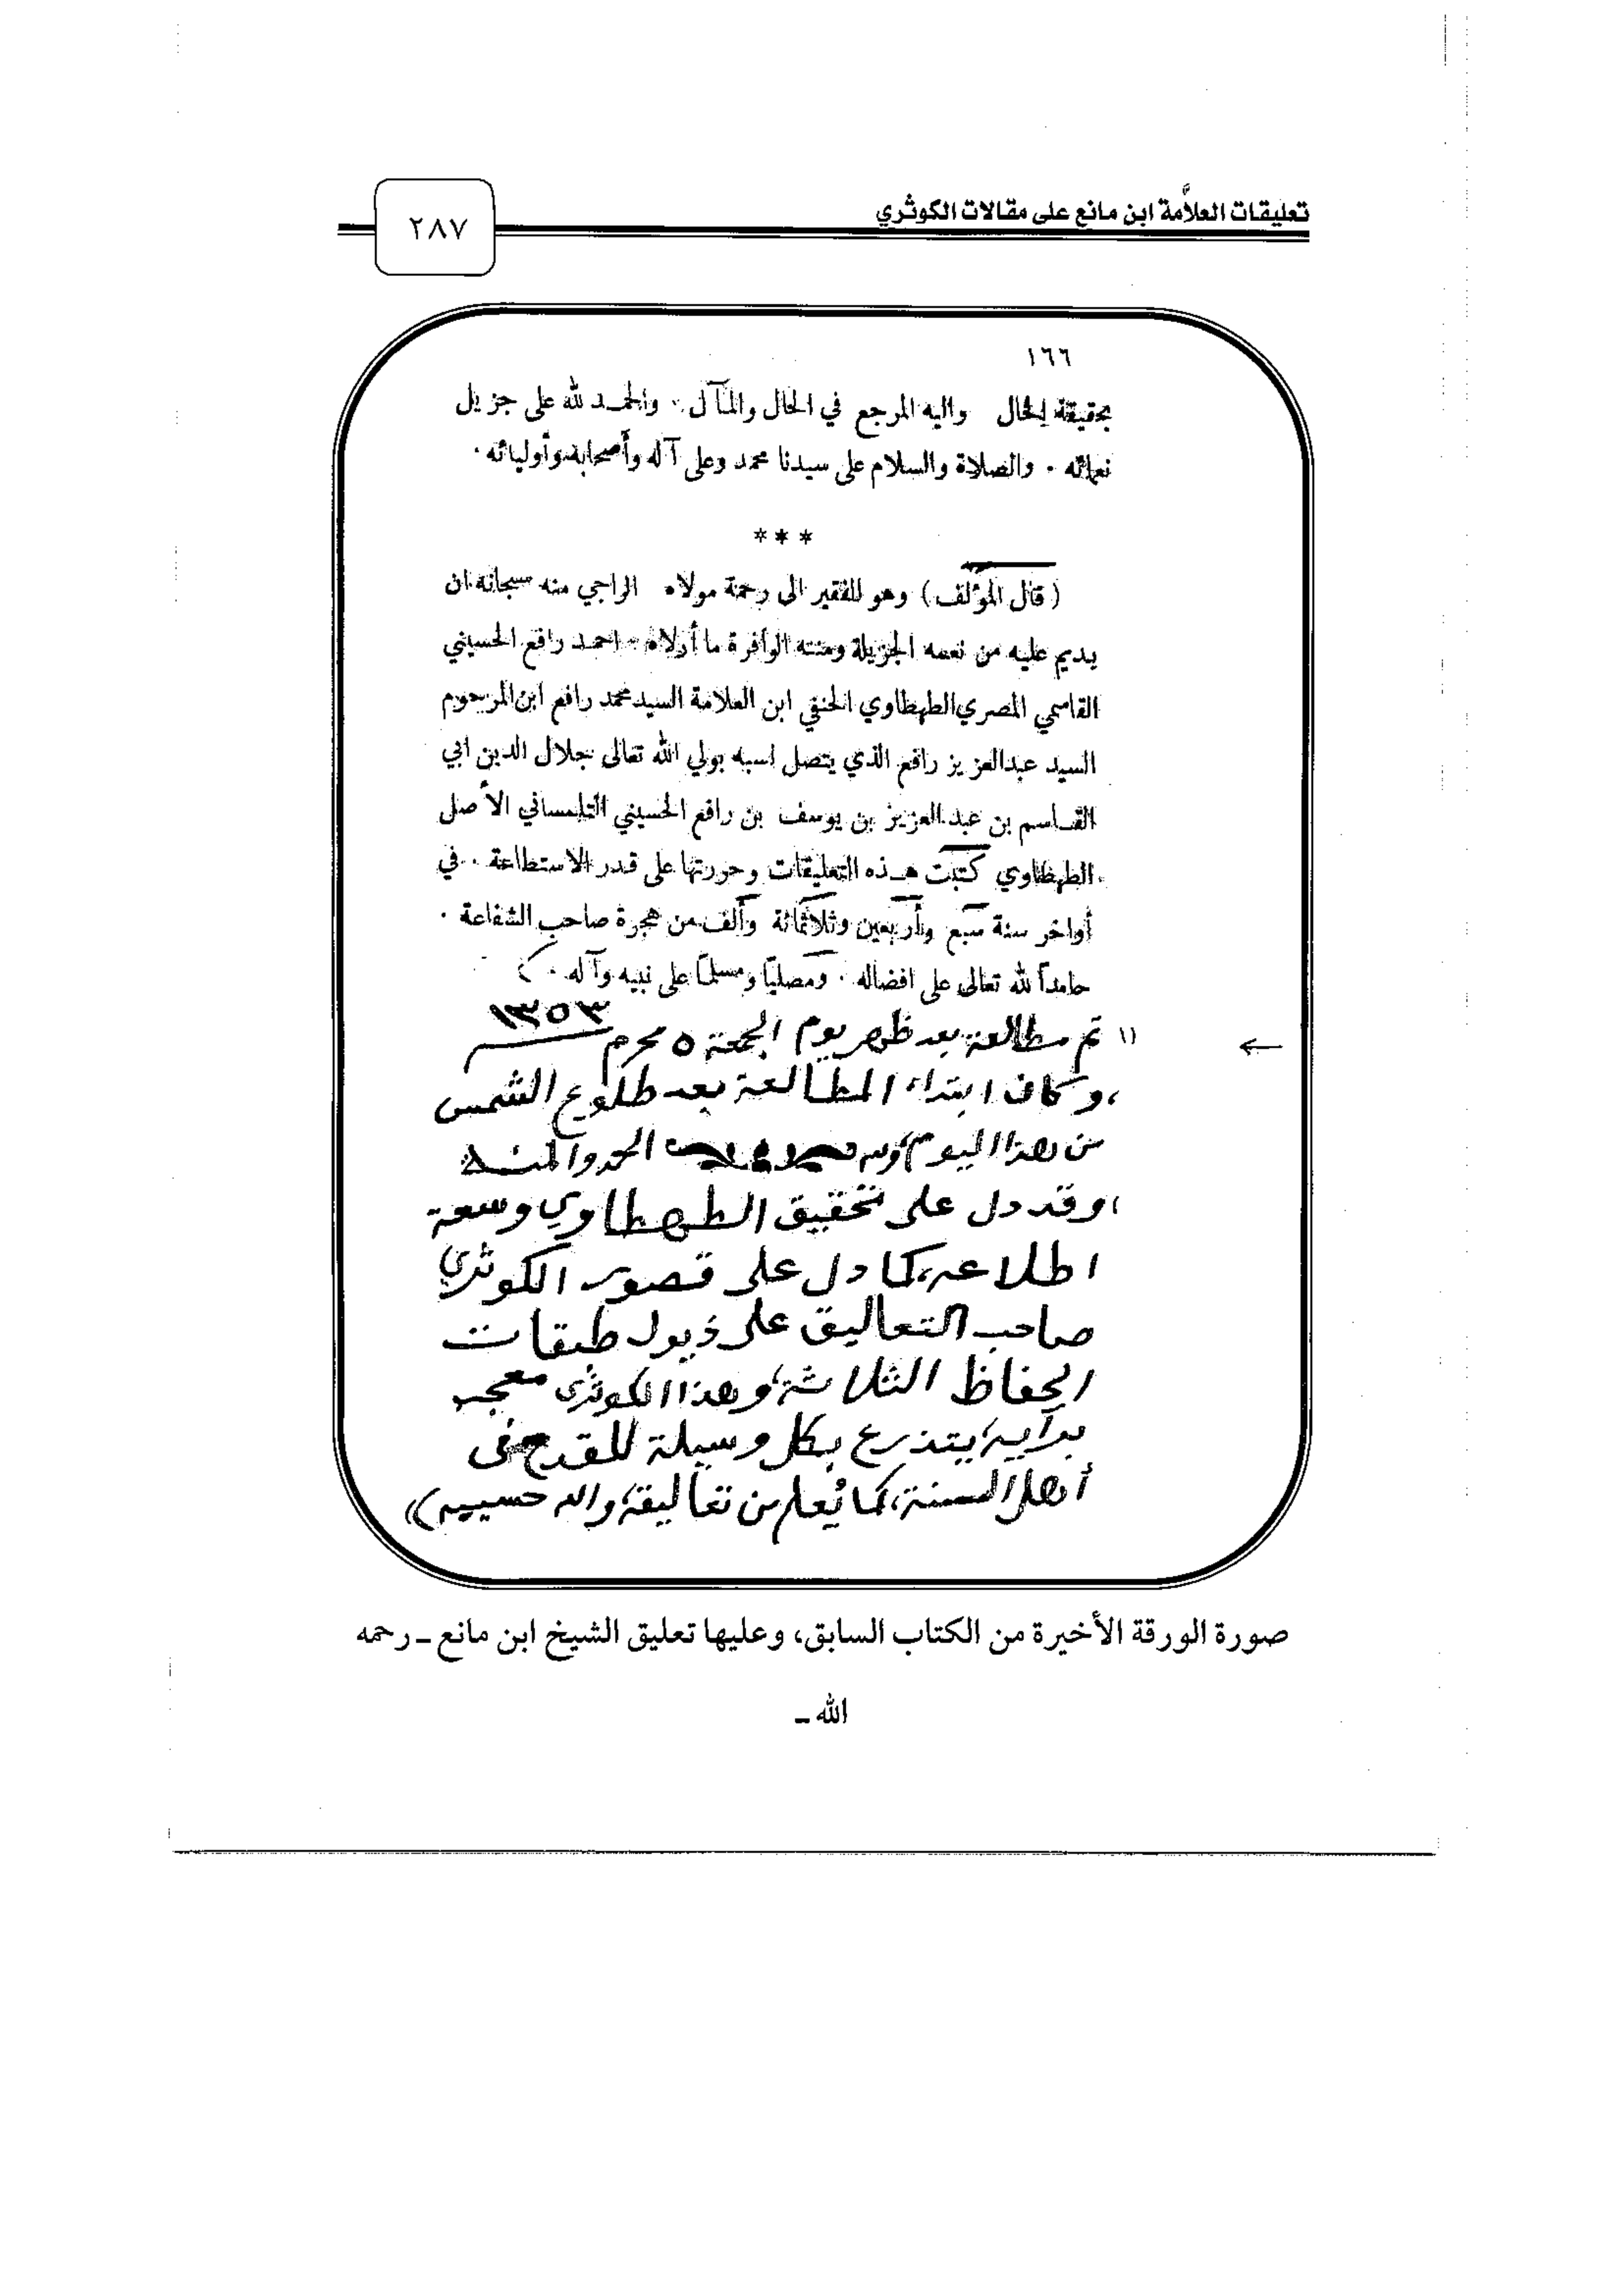 تعليقات العلاَّمة ابن مانع على مقالات الكوثري
٢٨٧
١٦٦
بحقيقة الحال واليه المرجع في الحال والمآل . والحمد لله على جزيل
نعمائه . والصلاة والسلام على سيدنا محمد وعلى آله وأصحابه وأوليائه .
***
( قال المؤلف ) وهو الفقير الى رحمة مولاه الراجي منه سبحانه ان
يديم عليه من نعمه الجزيلة ومننه الوافرة ما أولاه . احمد رافع الحسيني
القاسمي المصري الطهطاوي الحنفي ابن العلامة السيد محمد رافع ابن المرحوم
السيد عبدالعزيز رافع الذي يتصل نسبه بولي الله تعالى جلال الدين ابي
القاسم بن عبد العزيز بن يوسف بن رافع الحسيني التلمساني الأصل
الطهطاوي كتبت هذه التعليقات وحررتها على قدر الاستطاعة . في
أواخر سنة سبع وأربعين وثلاثمائة وألف من هجرة صاحب الشفاعة .
حامداً لله تعالى على افضاله . ومصلياً ومسلماً على نبيه وآله .
تم مطالعة بعد ظهر يوم الجمعة ٥ محرم ١٣٥٣
،وكان ابتداء المطالعة بعد طلوع الشمس
من هذا اليوم، ولله الحمد والمنة
،وقد دل على تحقيق الطهطاوي وسعة
اطلاعه، كما دل على قصور الكوثري
صاحب التعاليق على ذيول طبقات
الحفاظ الثلاثة، وهذا الكوثري معجب
برأيه، يتذرع بكل وسيلة للقدح في
أهل السنة، كما يُعلم من تعاليقه، والله حسيبه))
صورة الورقة الأخيرة من الكتاب السابق، وعليها تعليق الشيخ ابن مانع ـ رحمه
الله ـ